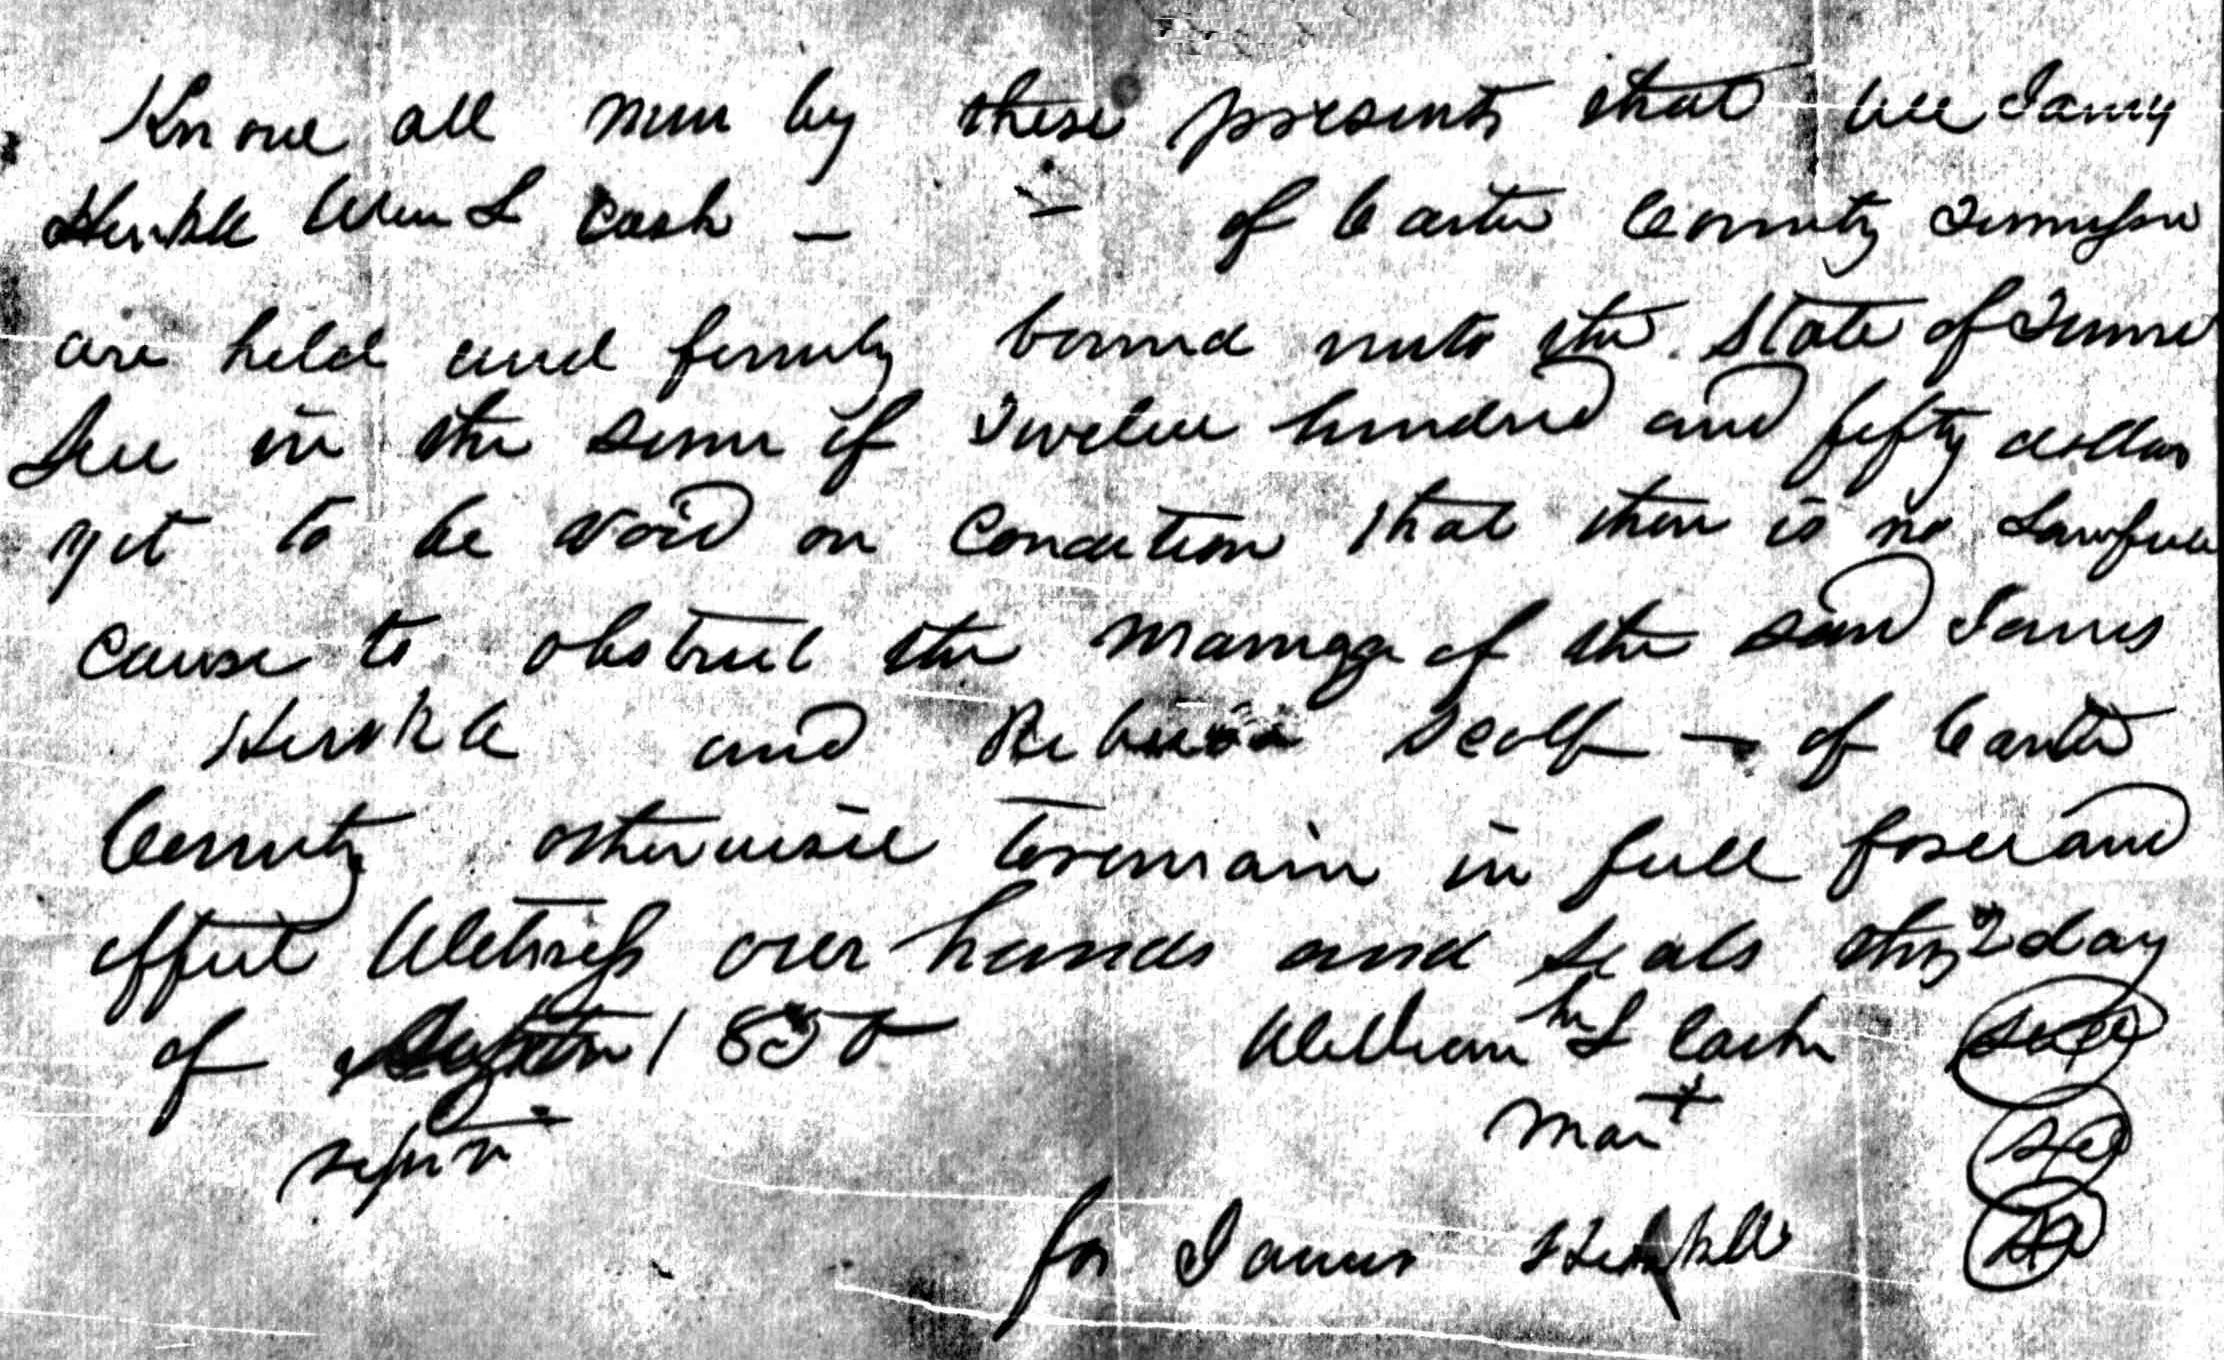 Know all men by these presents that we James
Henkle Wm L Cash — of Carter County Tennessee
are held and firmly bound unto the State of Tenne
See in the sum of Twelve hundred and fifty dollars
yet to be void on Condition that there is no Lawfull
Cause to obstruct the Marriage of the said James
Henkle and Rebecca Scalf — of Carter
County otherwise to remain in full force and
effect Witness our hands and seals this 2 day
of 1850
Septr
William his L Cash Seal
Mark +
for James Henkle